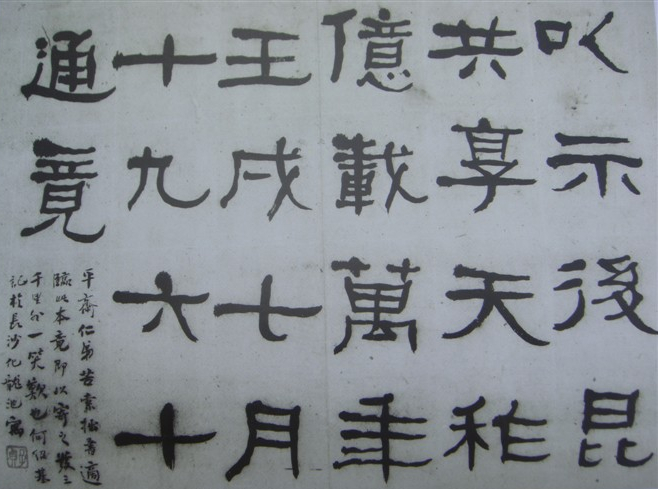 以示後昆
共享天祚
億載萬年
壬戌七月
十九六十
通竟
平齋仁弟苦索拙書適
臨此本竟即以寄之發三
千里外一笑也何紹基
記於長沙化龍池寓